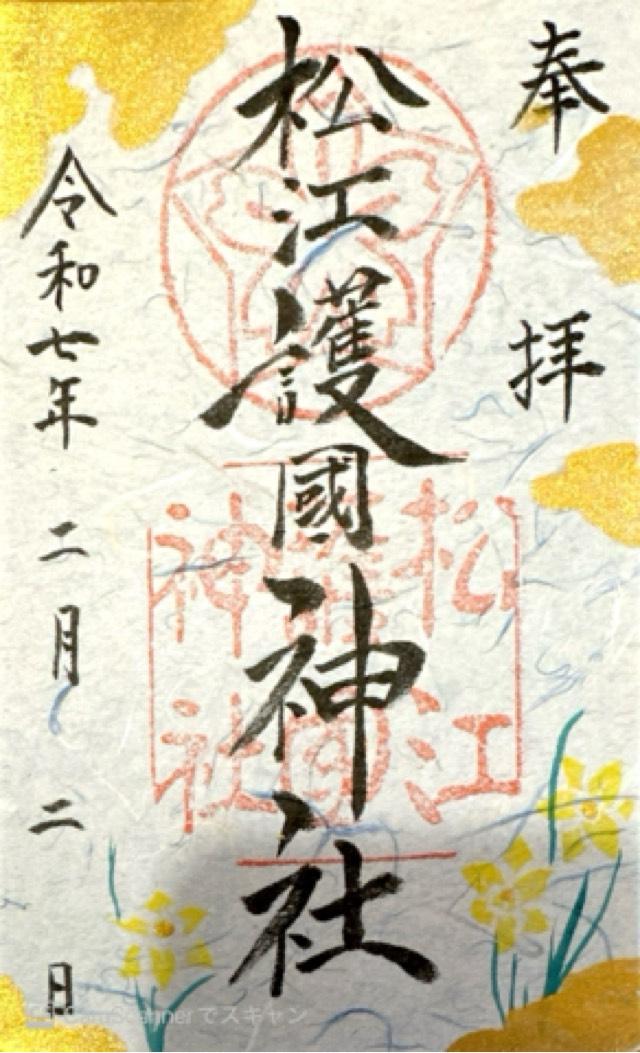 奉拝
松江護國神社
松江
護國
神社
令和七年二月二日
CamScannerでスキャン